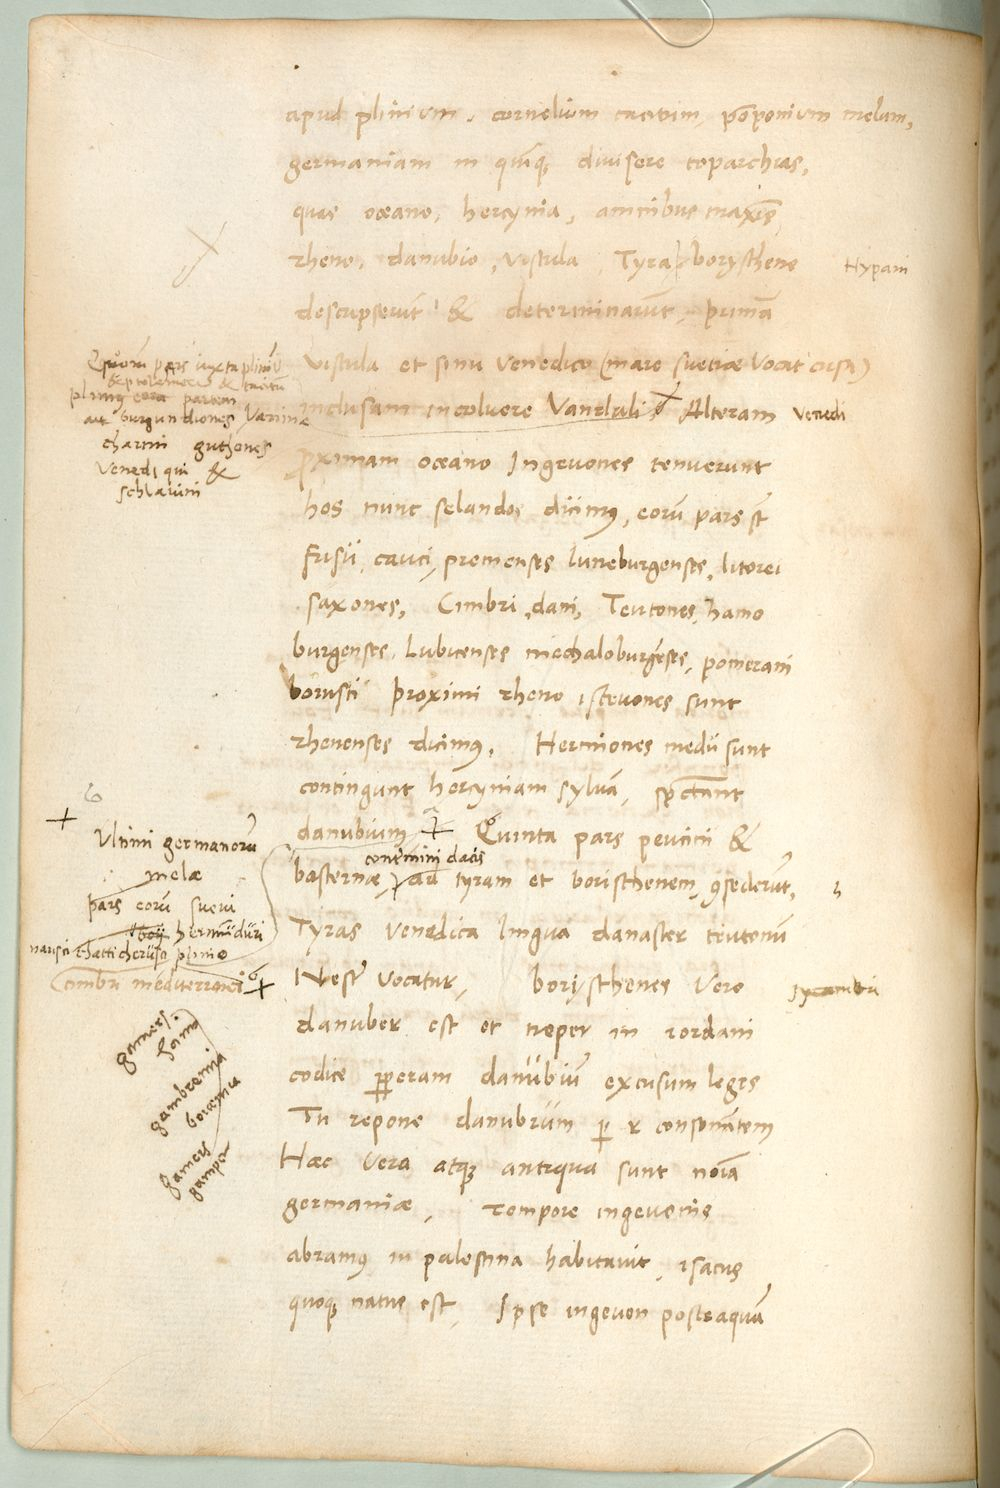 apud plinium, cornelium tacitum, põponium melam,
germaniam in quĩq; divisere toparchias,
quas oceano, hercynia, amnibus maxĩs
rheno, danubio, vistula, Tyra, borysthene
Hypani
descripserũt & determinarũt, primã
vistula et sinu venedico (mare suetiæ vocat
inclusam incoluere Vandali Alteram
venedi
proximam oceano Ingevones tenuerunt
hos nunc selandos dicimꝰ, eorũ pars st̃
frisii, cauci, premenses luneburgenses, litorei
saxones, Cimbri, dani, Teutones, hamo
burgenses, Lubicenses mechaloburgẽses, pomerani
borusci proximi rheno istevones sunt
rhenenses dicimꝰ. Hermiones medii sunt
contingunt hercyniam sylvã, spectant
danubium Quinta pars peucini &
contermini dacis
basternæ tyram et boristhenem, ꝯsederũt,
Tyras venedica lingua danaster teutonũ
Nester vocatur, borysthenes vero
danuber est et neper in iordani
codice ꝑperam danubiũ excusum legis
Tu repone danubrum ꝑ r consonãtem
Hæc vera atq; antiqua sunt noĩa
germaniæ, Tempore ingevonis
abramꝰ in palestina habitavit, isacus
quoq; natus est, Ipse ingevon posteaquã
Quorũ pars iuxta pliniũ
& ptolemeũ & tacitũ
burgundiones Varinnæ
charini guthones
Venedi qui &
schlavini
Ultimi germanorũ
melæ
pars eorũ suevi
boij hermũduri
narisci chatti cherusci plinio
Cimbri mediterranei
gamers
gambrenia
boiæmia
gamers
gamper
sycambri